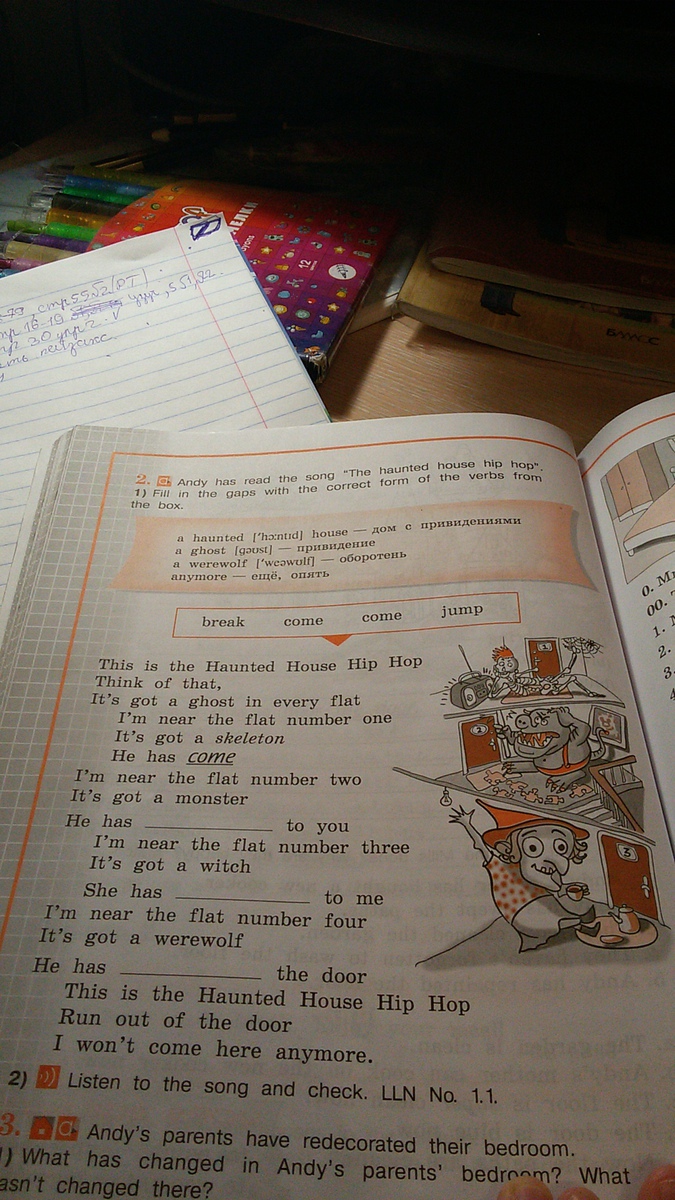 ЕЛКИ
12
стр 55
16-19
30 упр 2.
пейзаж
БАНС С
2. Andy has read the song "The haunted house hip hop".
1) Fill in the gaps with the correct form of the verbs from
the box.
a haunted ['hɔ:ntɪd] house — дом с привидениями
a ghost [gəʊst] — привидение
a werewolf ['weəwʊlf] — оборотень
anymore — ещё, опять
break come come jump
This is the Haunted House Hip Hop
Think of that,
It's got a ghost in every flat
I'm near the flat number one
It's got a skeleton
He has come
I'm near the flat number two
It's got a monster
He has ____________ to you
I'm near the flat number three
It's got a witch
She has ____________ to me
I'm near the flat number four
It's got a werewolf
He has ____________ the door
This is the Haunted House Hip Hop
Run out of the door
I won't come here anymore.
1
2
3
2) Listen to the song and check. LLN No. 1.1.
3. Andy's parents have redecorated their bedroom.
1) What has changed in Andy's parents' bedroom? What
asn't changed there?
0. М
00.
1.
2.
3.
4